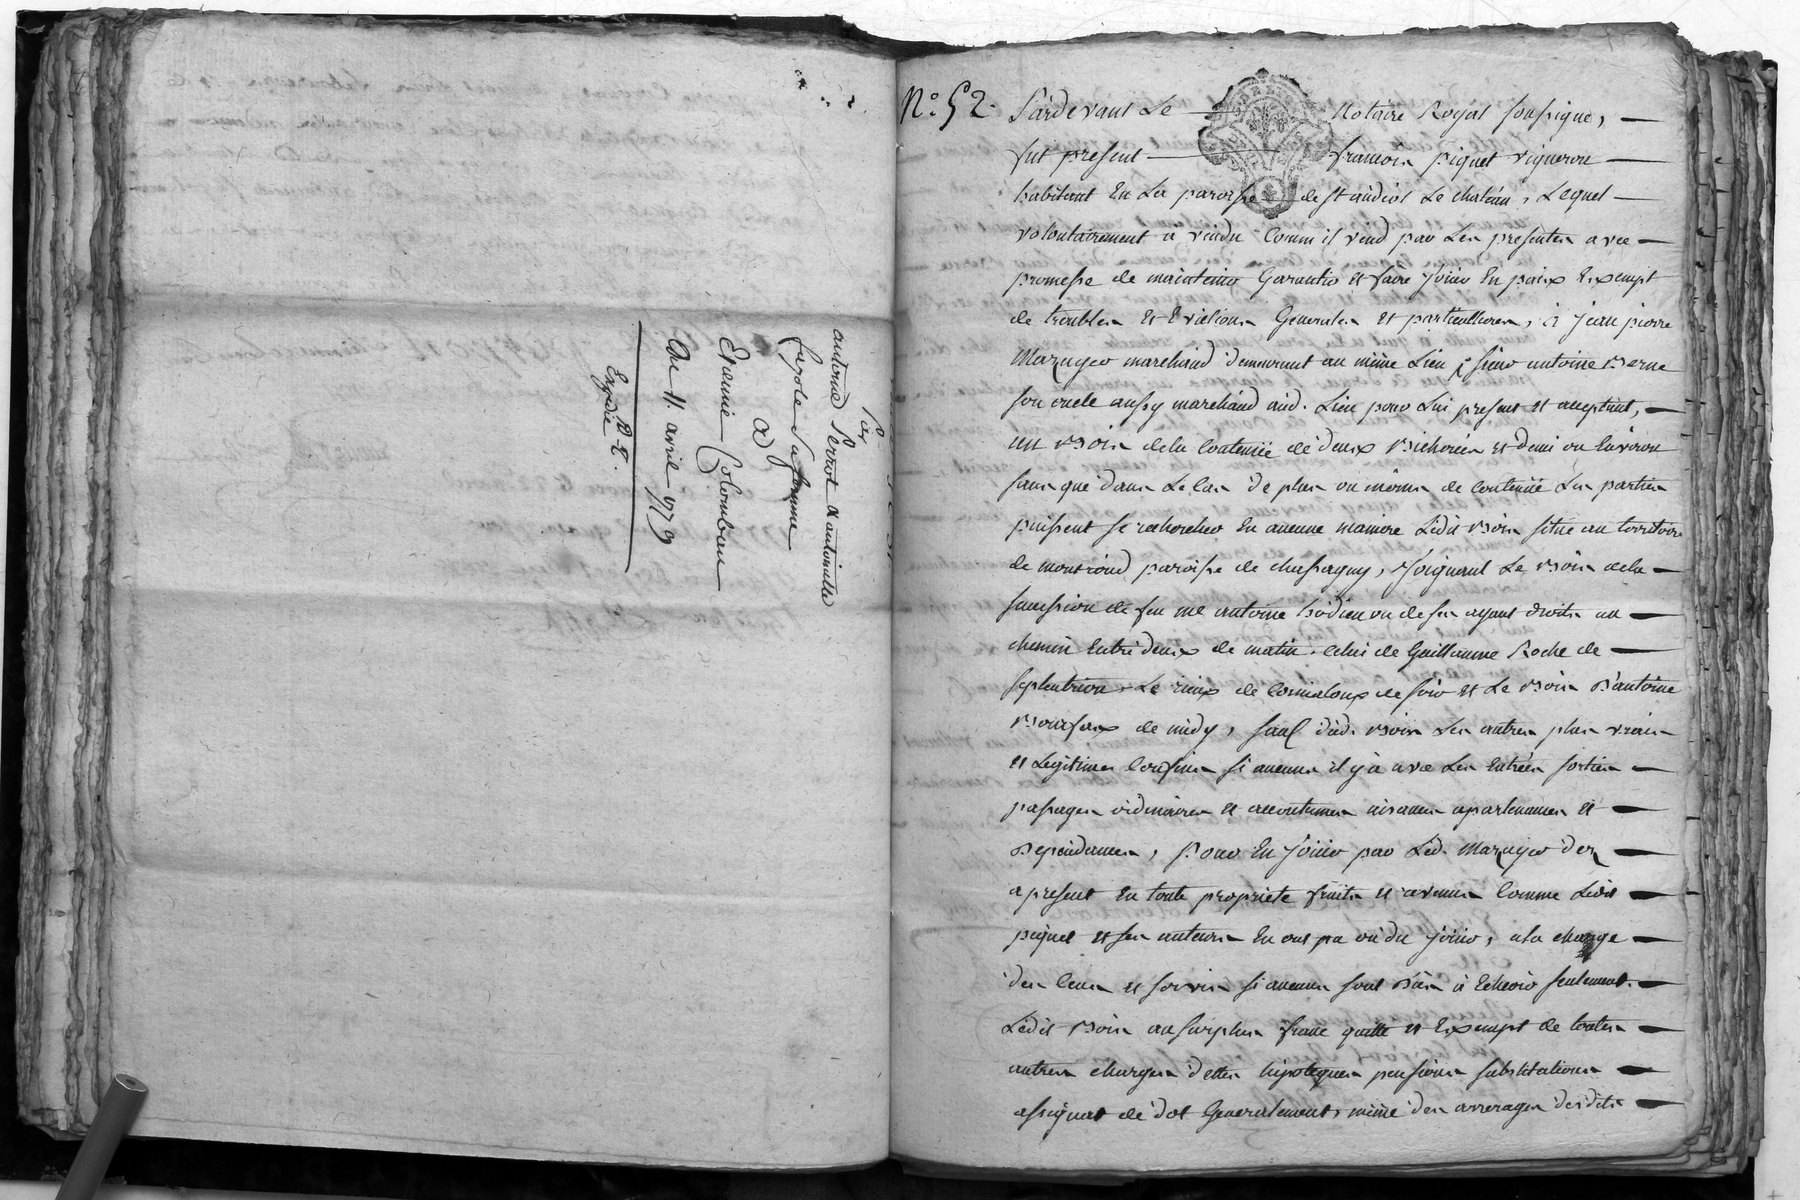 Par
antoine Perrot & antoinette
fayole sa femme
a
Etienne Colombau
Du 11. avril 1779
22.
Expedié
N.º 52.
Pardevant Le Notaire Royal soussigné,
fut present francois piquet vigneron
habitant En La paroisse de st andiol Le chatéau, Lequel
volontairement à vendu Comm il vend par Les presentes avec
promesse de maintenir Garantir et faire Joüir En paix Exempt
de troubles Et Evictions Generales et particullieres, à jean pierre
Mazuyer marchand demeurant au même Lieu sieur antoine Berne
son oncle aussy marchand aud. Lieu pour Lui present et acceptant,
un Bois dela Contenüe de deux Bicherées et demi ou Environ
sans que dans Le Cas de plus ou moins de Contenüe Les parties
puissent se rechercher En aucune maniere Ledit Bois situé au territoire
de montrond paroisse de chassagny, Joignant Le Bois dela
succession de feu me antoine Bodieu ou de ses ayant droits un
chemin Entre deux de matin, celui de Guillaume Roche de
septentrion, Le de soir et Le Bois D'antoine
de midy, sauf dud. Bois Les autres plus vrais
et Legitimes Confins si aucuns il y à avec Les Entrées sorties
passages ordinaires et accoutumés aisances apartenances et
Dependances, Pour En Joüir par Led. Mazuyer dez
apresent En toute proprieté fruits et revenus Comme Ledit
piquet et ses auteurs En ont pu ou du Joüir, ala charge
des Cens et servis si aucuns sont Dûs à Echeoir seulement.
Ledit Bois au surplus franc quitte et Exempt de toutes
autres charges dettes hipoteques pensions substitutions
assignat de dot Generalement, même des arrerages desdits